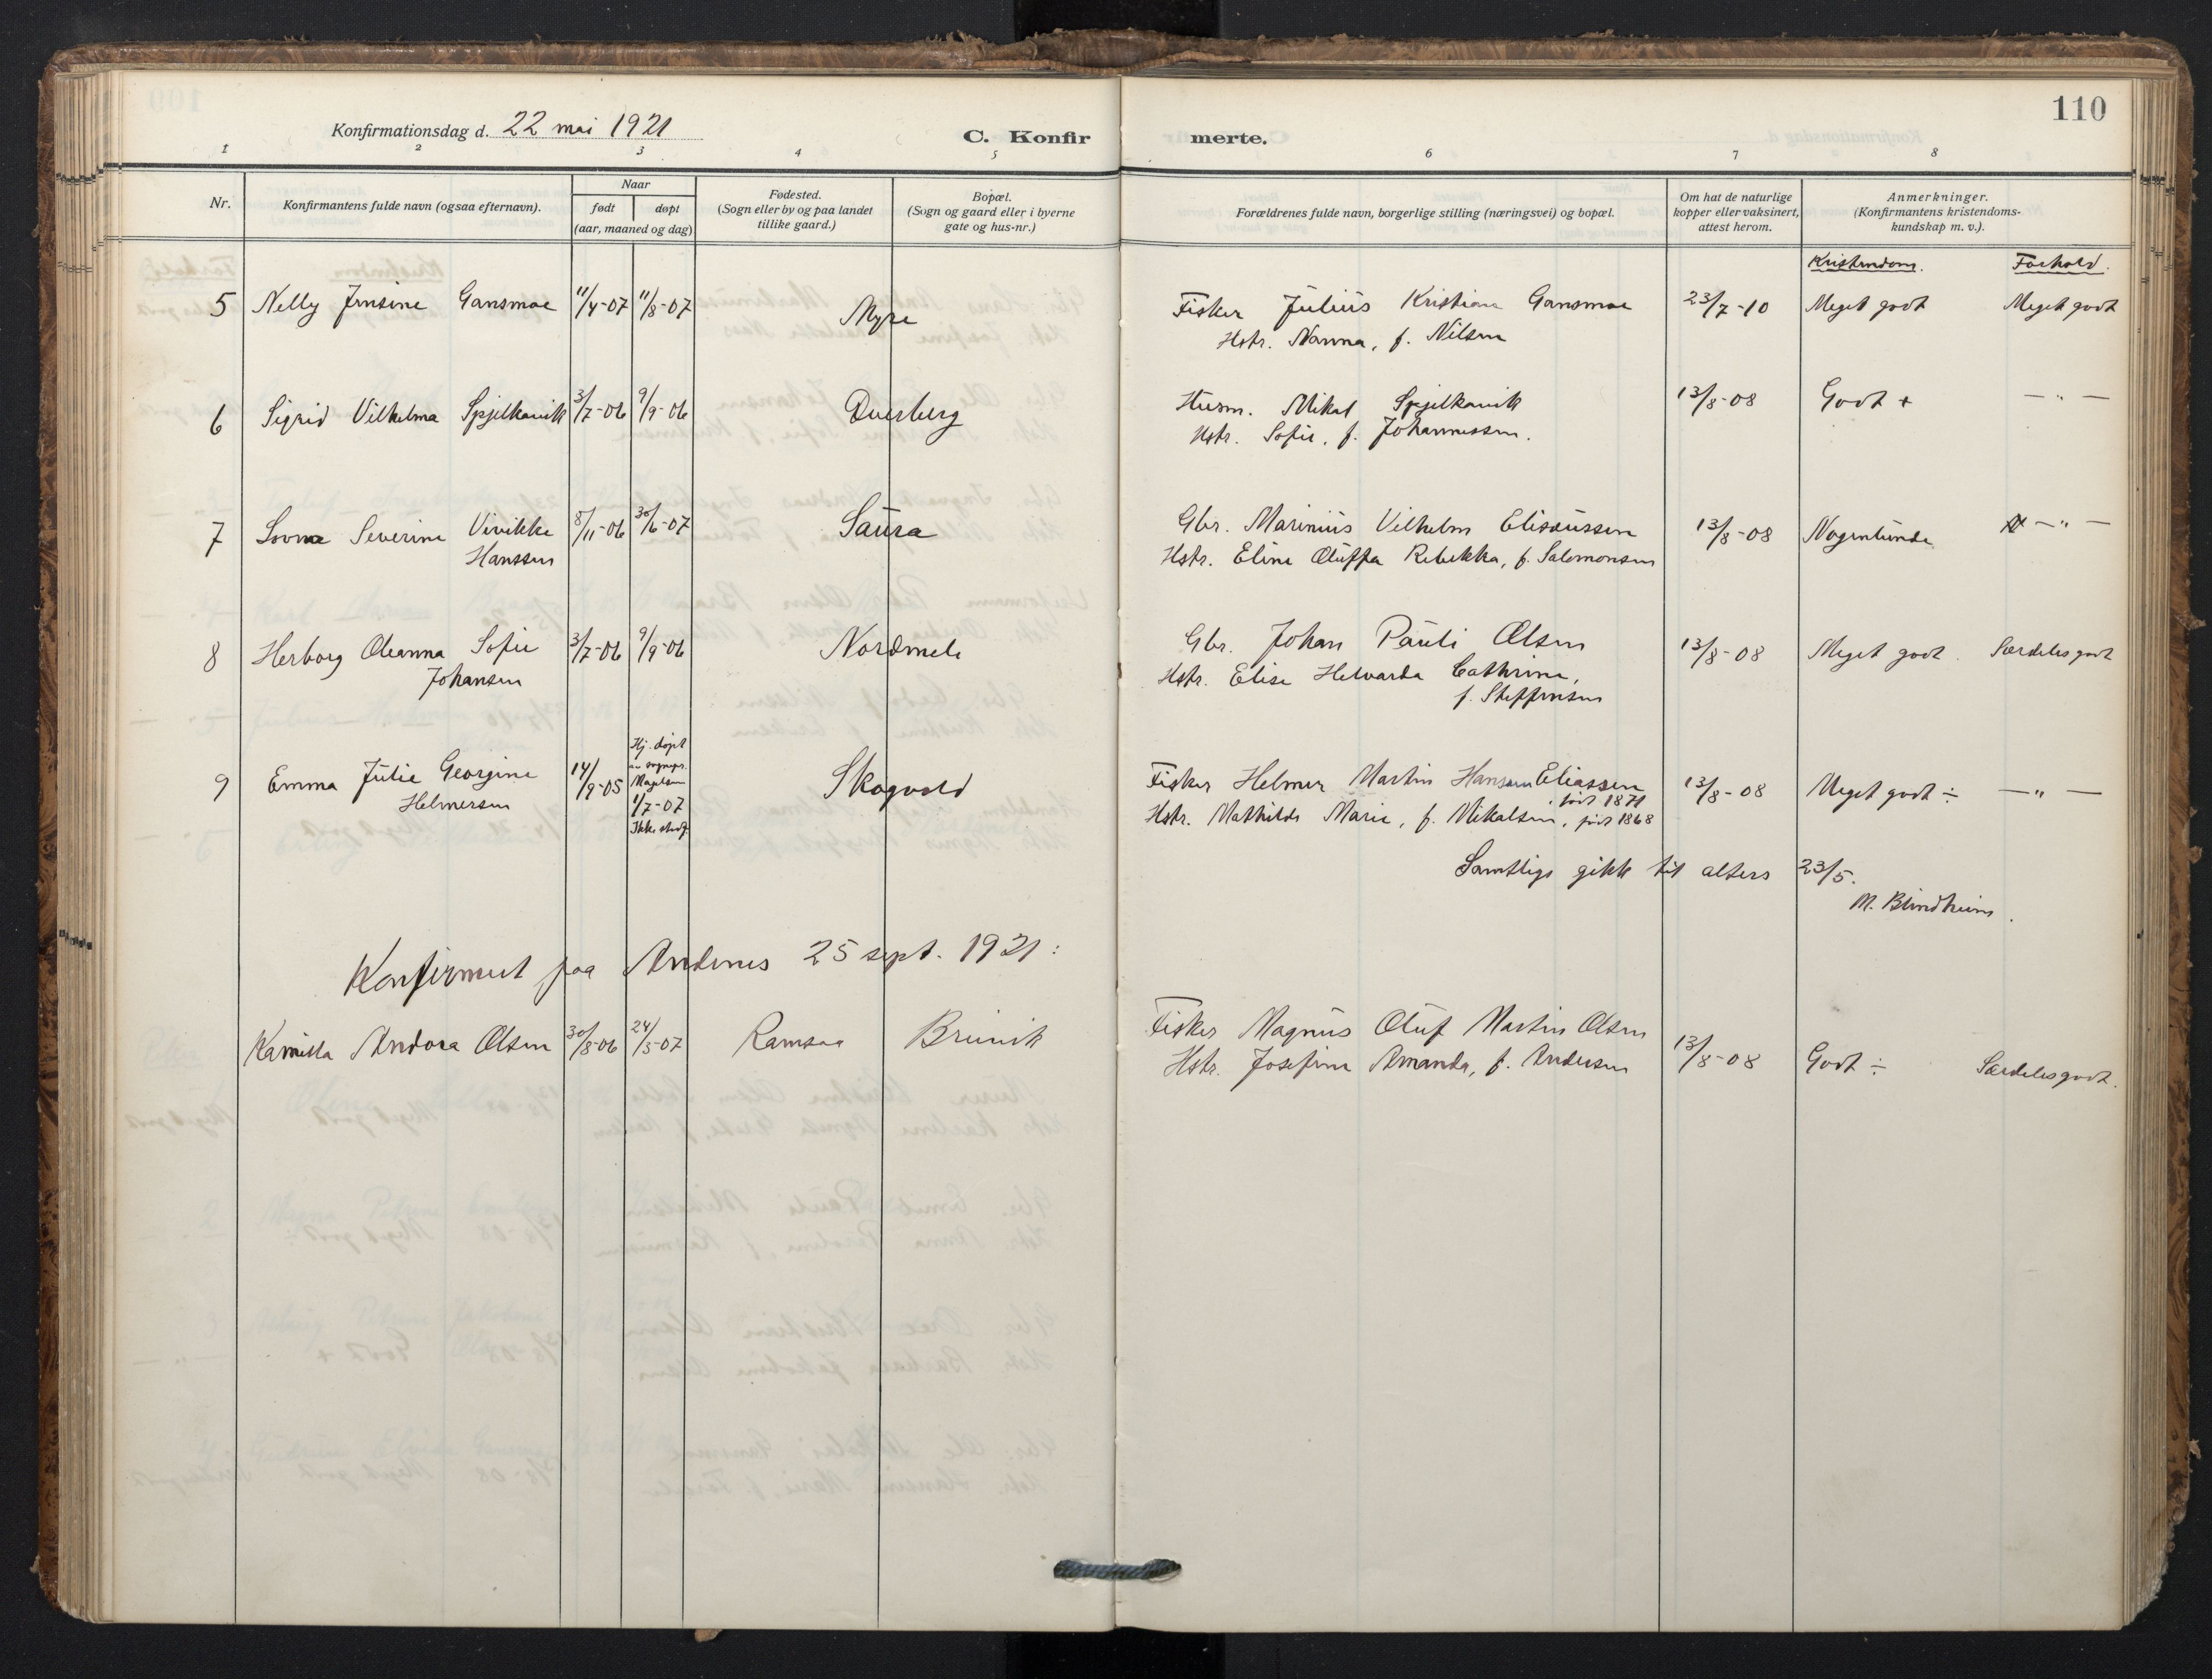 110
Konfirmationsdag d. 22 mai 1921
C. Konfirmerte.
1 2 3 4 5 6 7 8
Nr.
Konfirmantens fulde navn (ogsaa efternavn).
Naar
født døpt
(aar, maaned og dag)
Fødested.
(Sogn eller by og paa landet
tillike gaard.)
Bopæl.
(Sogn og gaard eller i byerne
gate og hus-nr.)
Forældrenes fulde navn, borgerlige stilling (næringsvei) og bopæl.
Om hat de naturlige
kopper eller vaksinert,
attest herom.
Anmerkninger.
(Konfirmantens kristendoms-
kundskap m. v.).
Kristendom. Forhold.
5 Nelly Jensine Gansmoe 11/4-07 11/8-07 Myre Fisker Julius Kristian Gansmoe 23/7-10 Meget godt Meget godt
Hstr. Nanna, f. Nilsen
6 Sigrid Vilhelma Spjelkavik 3/7-06 9/9-06 Dverberg Husm. Mikal Spjelkavik 13/8-08 Godt + — " —
Hstr. Sofie, f. Johannessen.
7 Lovna Severine Vivikke 8/11-06 30/6-07 Saura Gbr. Marinius Vilhelm Elisæussen 13/8-08 Nogenlunde — " —
Hanssen Hstr. Eline Oluffa Rebekka, f. Salomonsen
8 Herborg Oleanna Sofie 3/7-06 9/9-06 Nordmele Gbr. Johan Pauli Olsen 13/8-08 Meget godt. Særdeles godt
Johansen Hstr. Elise Helvarda Cathrine,
f. Steffensen
9 Emma Julie Georgine 14/9-05 Hj. døpt
av sognepr.
Magelsen
1/7-07
Ikke stadf. Skogvold Fisker Helmer Martin Hansen Eliassen 13/8-08 Meget godt ÷ — " —
Helmersen født 1871
Hstr. Mathilde Marie, f. Mikalsen, født 1868
Samtlige gikk til alters 23/5.
M. Blindheim.
Konfirmert paa Andenes 25 sept. 1921:
Kamilla Andora Olsen 30/8-06 24/3-07 Ramsaa Bruvik Fisker Magnus Oluf Martin Olsen 13/8-08 Godt ÷ Særdeles godt.
Hstr. Josefine Amanda, f. Andersen